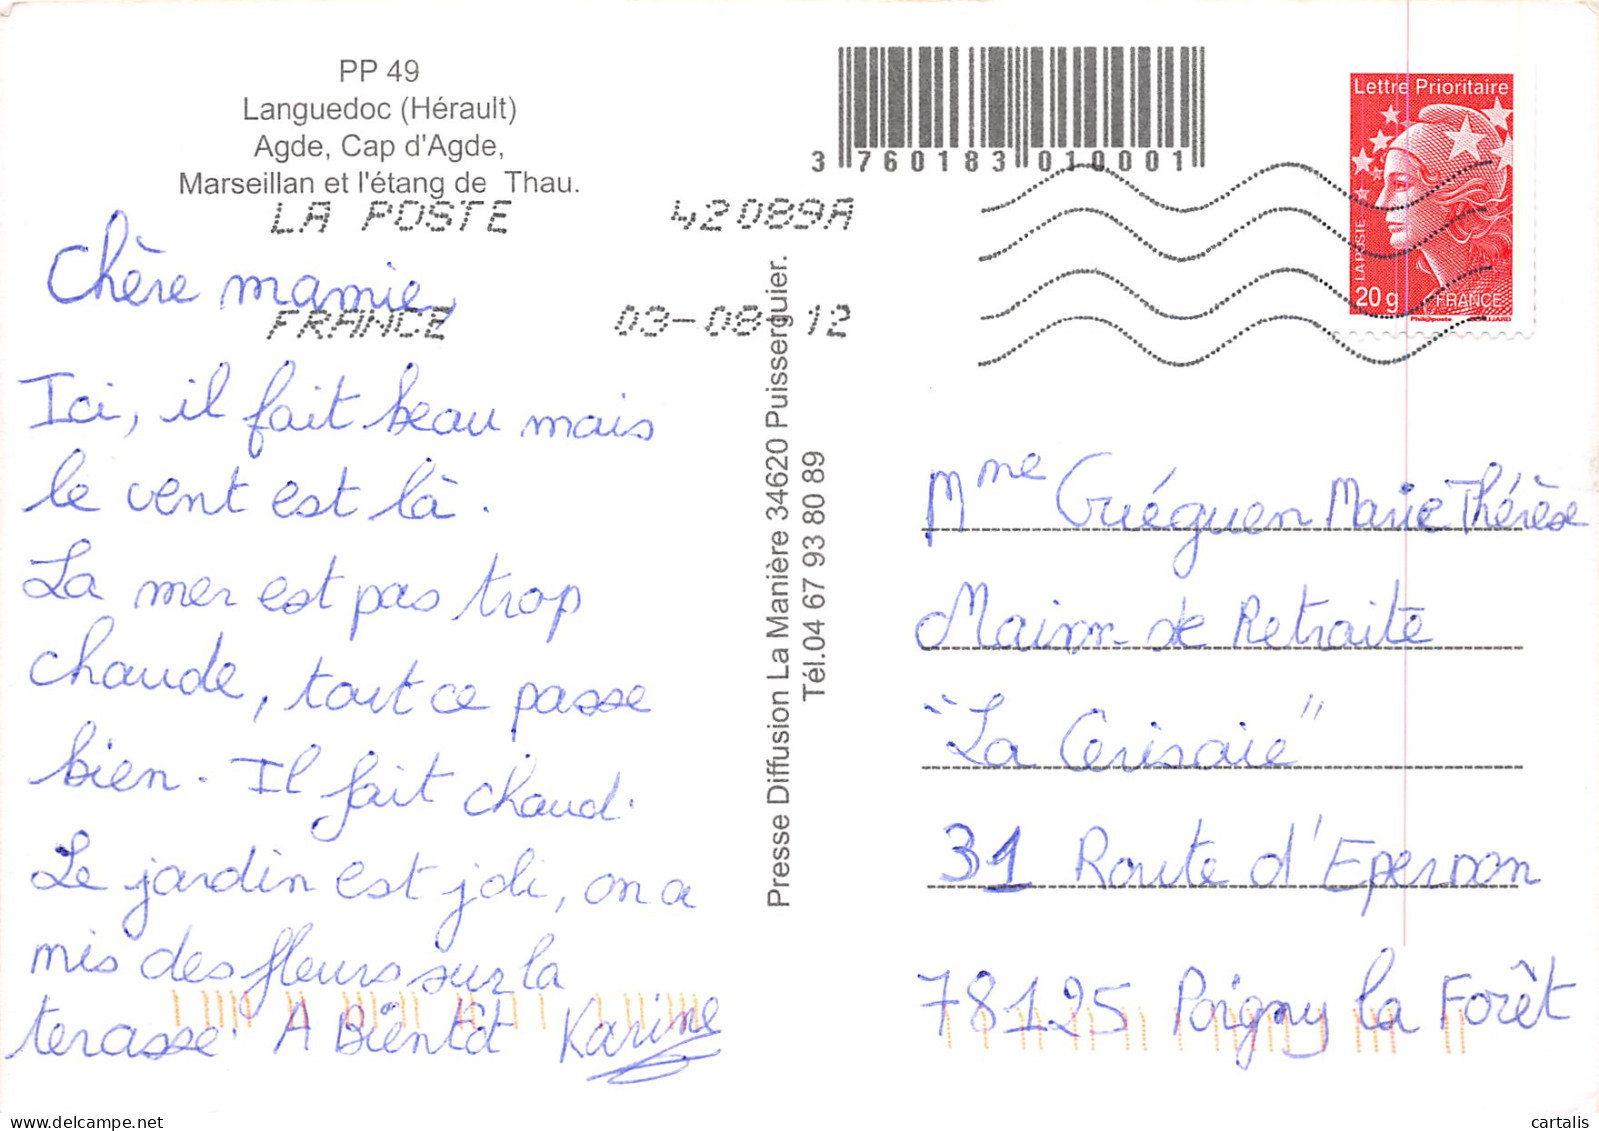 PP 49
Languedoc (Hérault)
Agde, Cap d'Agde,
Marseillan et l'étang de Thau.
LA POSTE 42089A
FRANCE 03-08-12
Chère mamie,
Ici, il fait beau mais
le vent est là.
La mer est pas trop
chaude, tout ce passe
bien. Il fait chaud.
Le jardin est joli, on a
mis des fleurs sur la
terasse. A Bientôt Karine
Presse Diffusion La Manière 34620 Puisserguier.
Tél.04 67 93 80 89
3 760183 010001
Lettre Prioritaire
LA POSTE
20 g
FRANCE
Phil@poste
Mme Guéguen Marie Thérèse
Maison de Retraite
"La Cerisaie"
31 Route d'Epernon
78125 Poigny la Forêt
cartalis